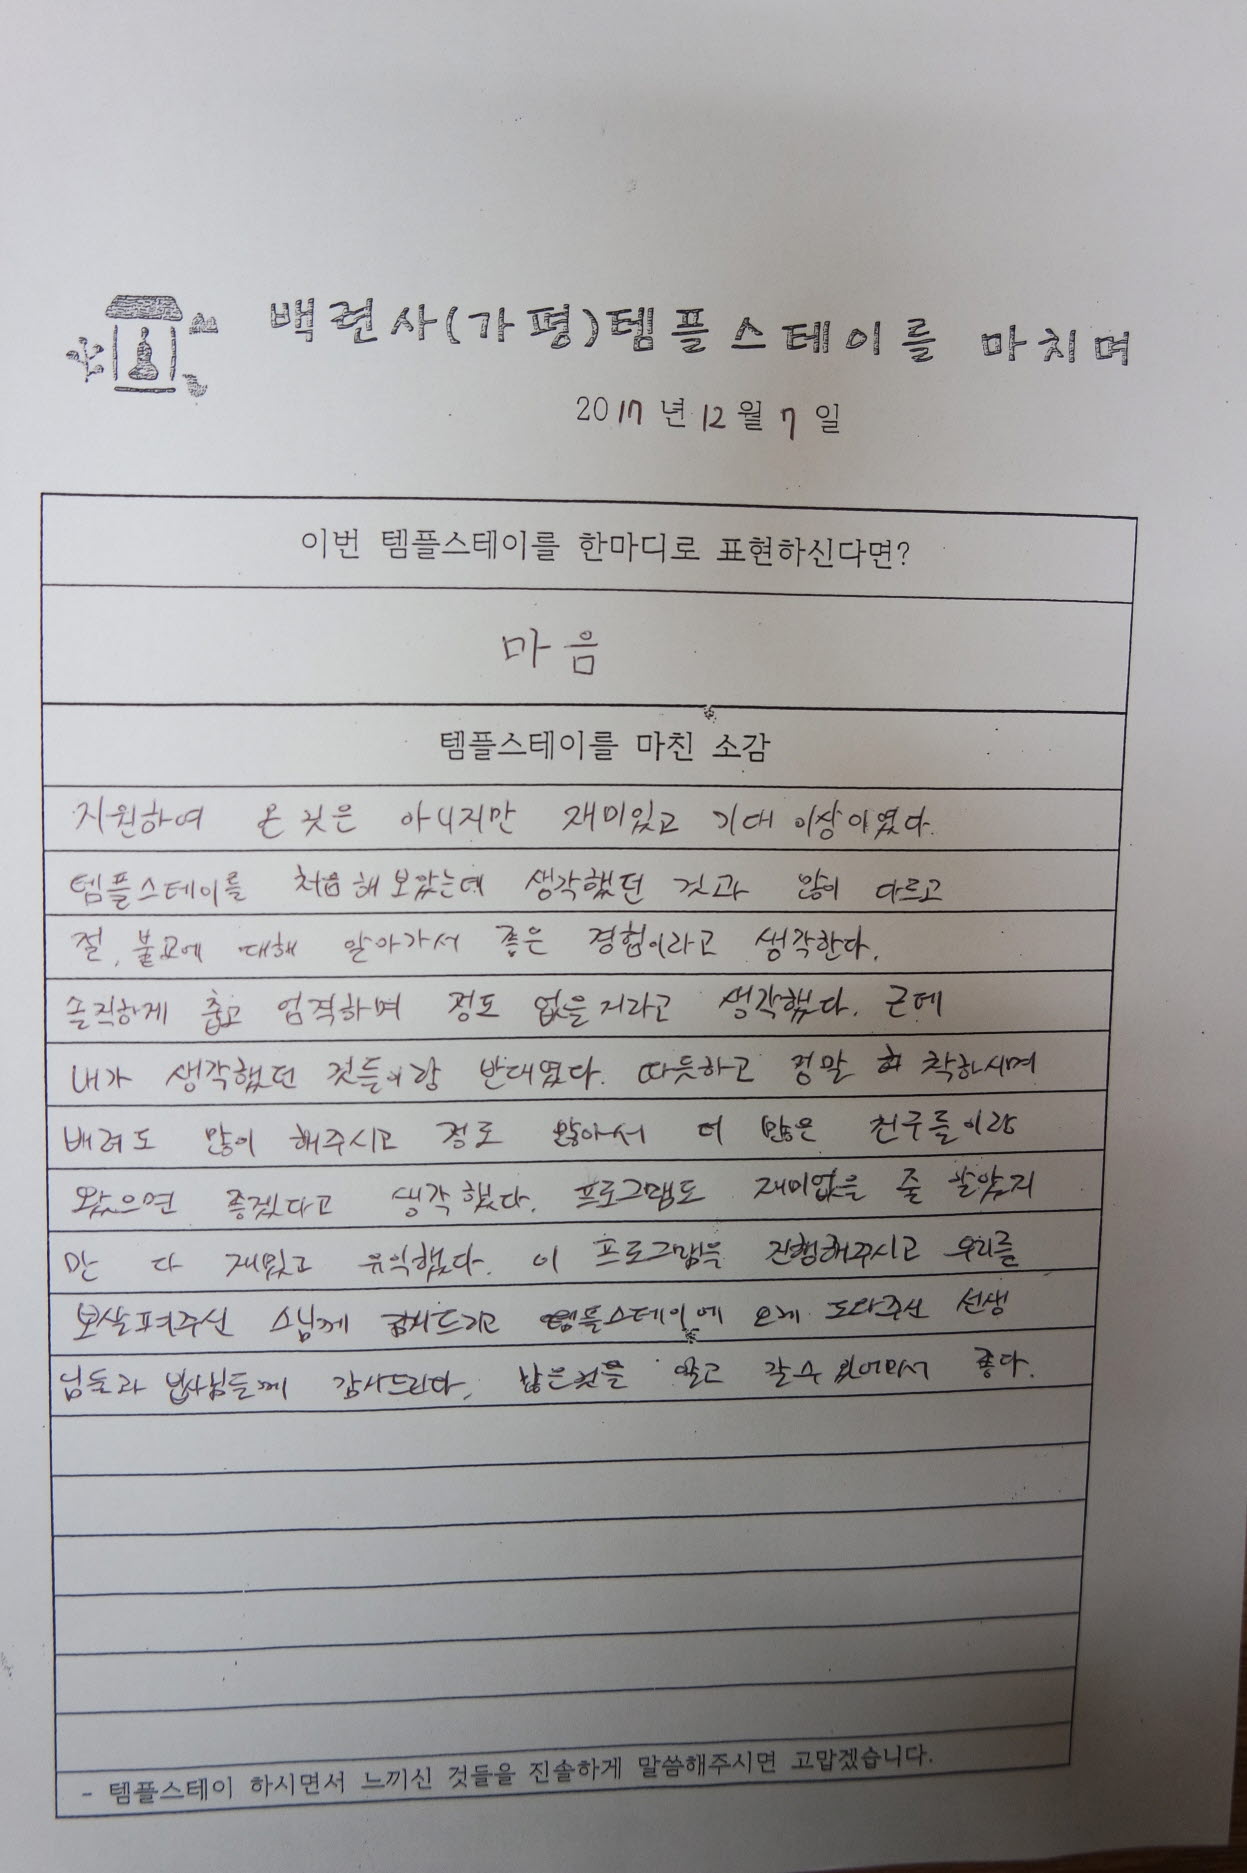 백련사(가평)템플스테이를 마치며
2017년 12월 7일
이번 템플스테이를 한마디로 표현하신다면?
마음
템플스테이를 마친 소감
지원하여 온것은 아니지만 재미있고 기대 이상이였다.
템플스테이를 처음해보았는데 생각했던 것과 많이 다르고
절, 불교에 대해 알아가서 좋은 경험이라고 생각한다.
솔직하게 춥고 엄격하며 정도 없을거라고 생각했다. 근데
내가 생각했던 것들이랑 반대였다. 따듯하고 정말 착하시며
배려도 많이 해주시고 정도 많아서 더 많은 친구들이랑
왔으면 좋겠다고 생각했다. 프로그램도 재미없을 줄 알았지
만 다 재밌고 유익했다. 이 프로그램을 진행해주시고 우리를
보살펴주신 스님께 감사드리고 템플스테이에 오게 도와주신 선생
님들과 법사님들께 감사드린다. 많은것을 알고 갈수있어서 좋다.
- 템플스테이 하시면서 느끼신 것들을 진솔하게 말씀해주시면 고맙겠습니다.